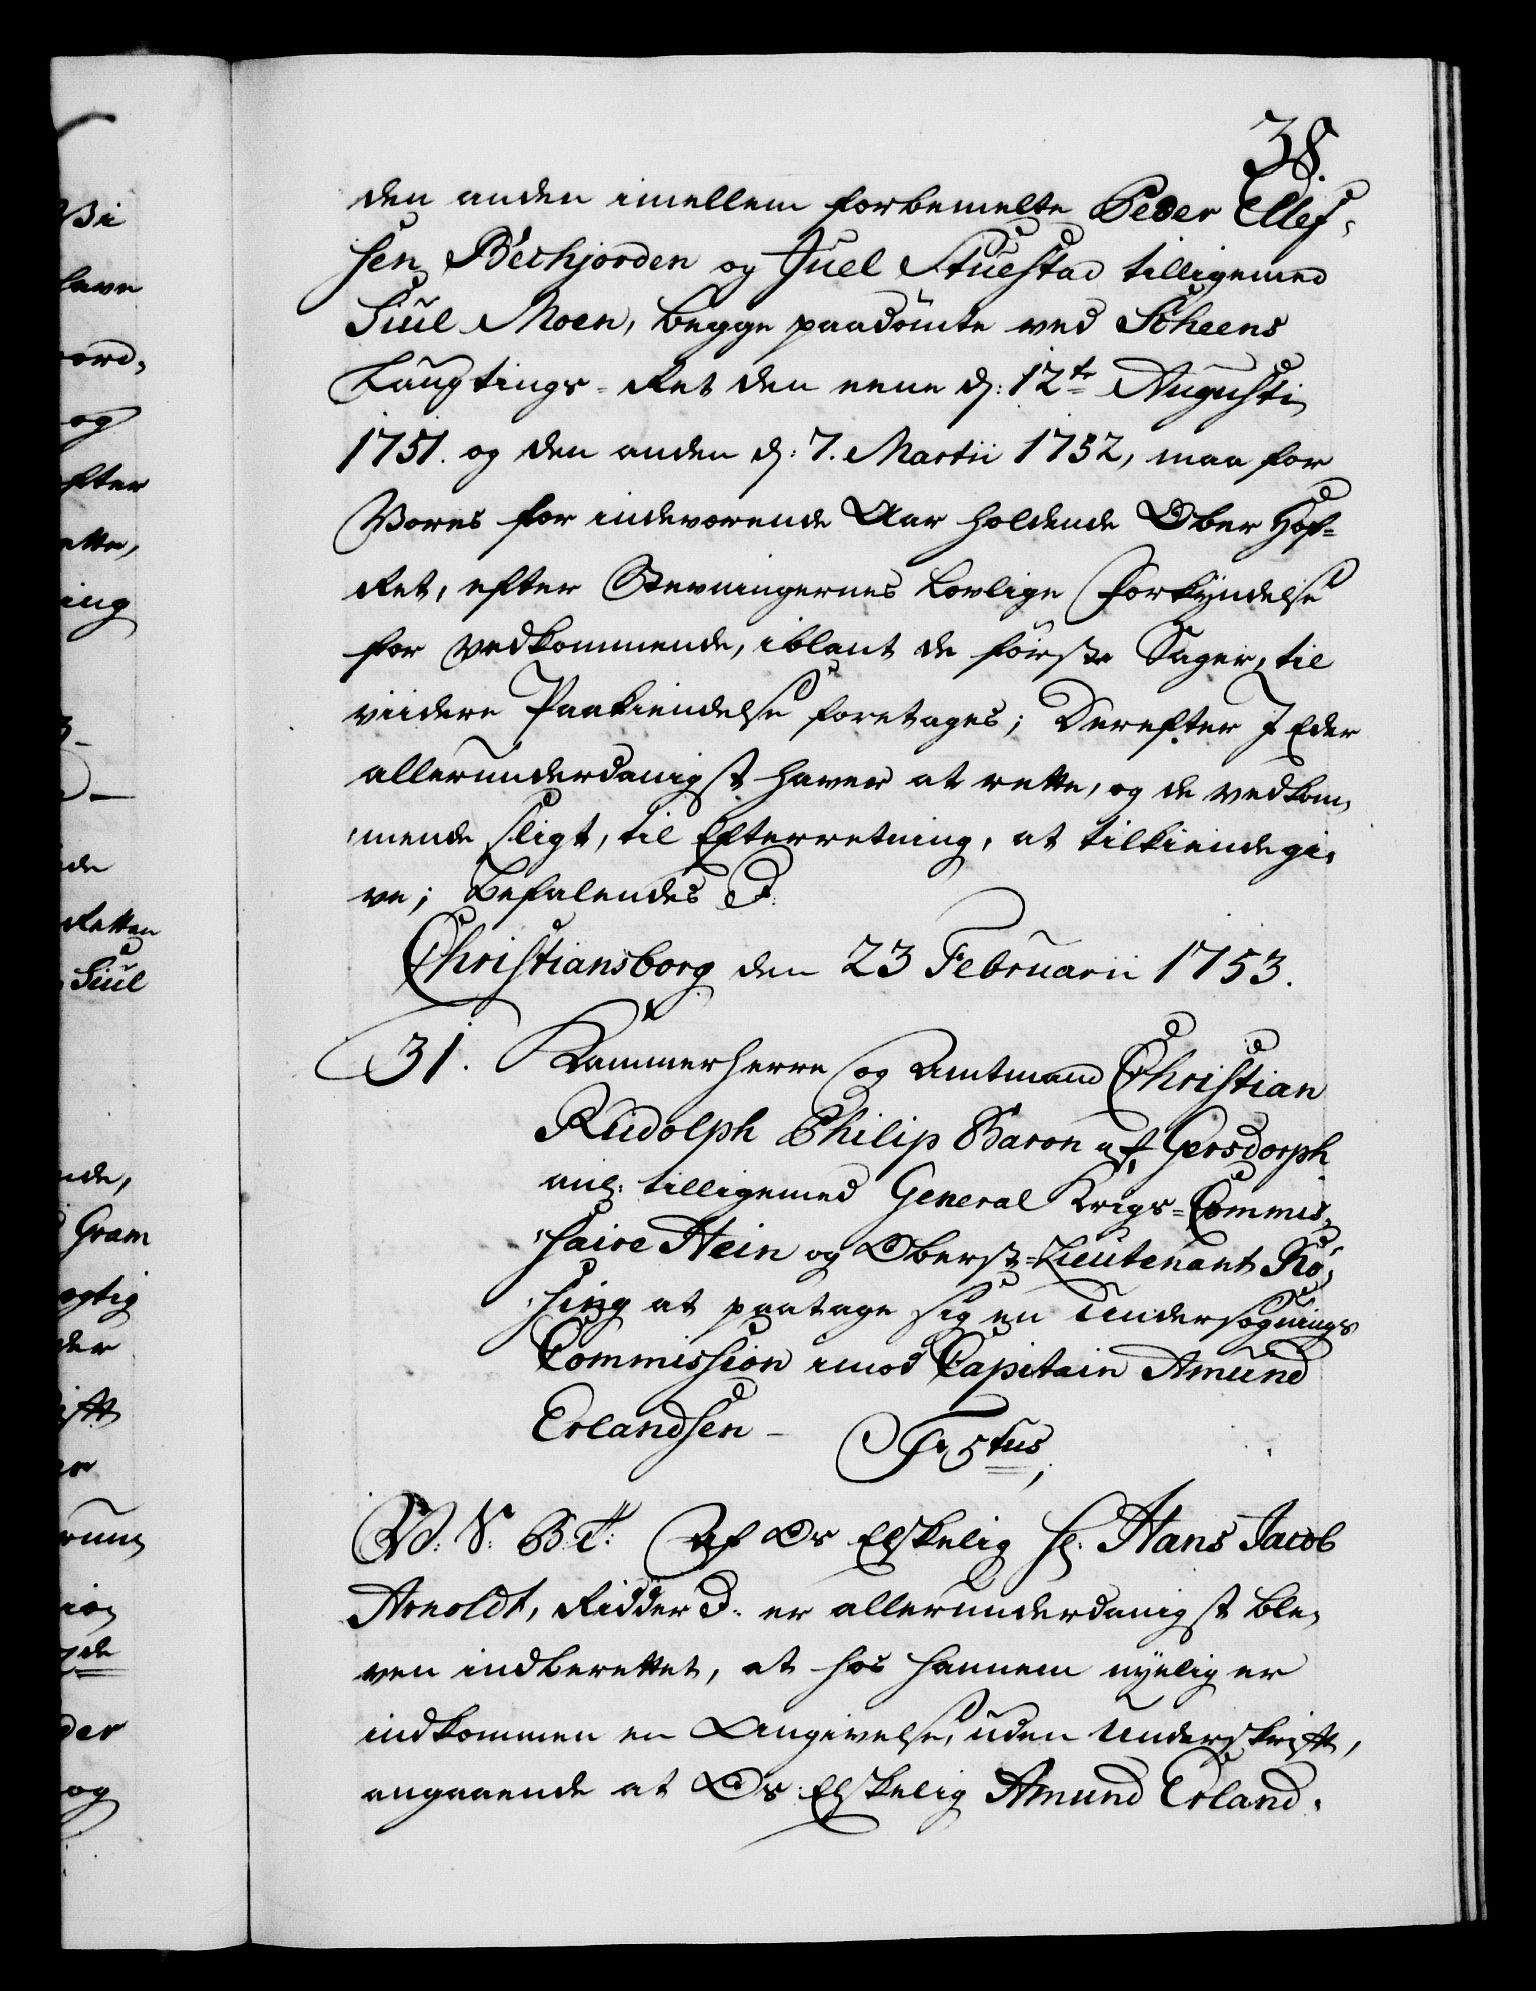 38.
den anden imellem forbemelte Peder Ellef-
sen Bechjorden og Juel Stuestad tilligemed
Siul Moen, begge paadömte ved Scheens
Laugtings-Ret den eene d: 12te Augusti
1751. og den anden d: 7. Martii 1752, maa for
Vores for indeværende Aar holdende Ober Hof-
Ret, efter Stevningernes Lovlige Forkyndelse
for vedkommende, iblant de förste Sager, til
viidere Paakiendelse foretages; Derefter I Eder
allerunderdanigst haver at rette, og de vedkom-
mende sligt, til Efterretning, at tilkiendegi-
ve; Befalendes &.
Christiansborg den 23 Februarii 1753.
31. Kammerherre og Amtmand Christian
Rudolph Philip Baron af Gersdorph
anl: tilligemed General Krigs-Commis-
saire Hein og Oberst-Lieutenant Rö-
sing at paatage sig en Undersögnings
Commission imod Capitain Amund
Erlandsen –
Fr 5tus,
V: S: B: T: Af Os Elskelig Hr. Hans Jacob
Arnoldt, Ridder &. er allerunderdanigst ble-
ven indberettet, at hos hannem nyelig er
indkommen en Angivelse, uden Underskrift,
angaaende at Os Elskelig Amund Erland-
Bi
have
ord,
og
efter
ette,
ing
de
Retten
Siul
nde,
Gram
ægtig
der
ift
er
rum
ion
de
der
og